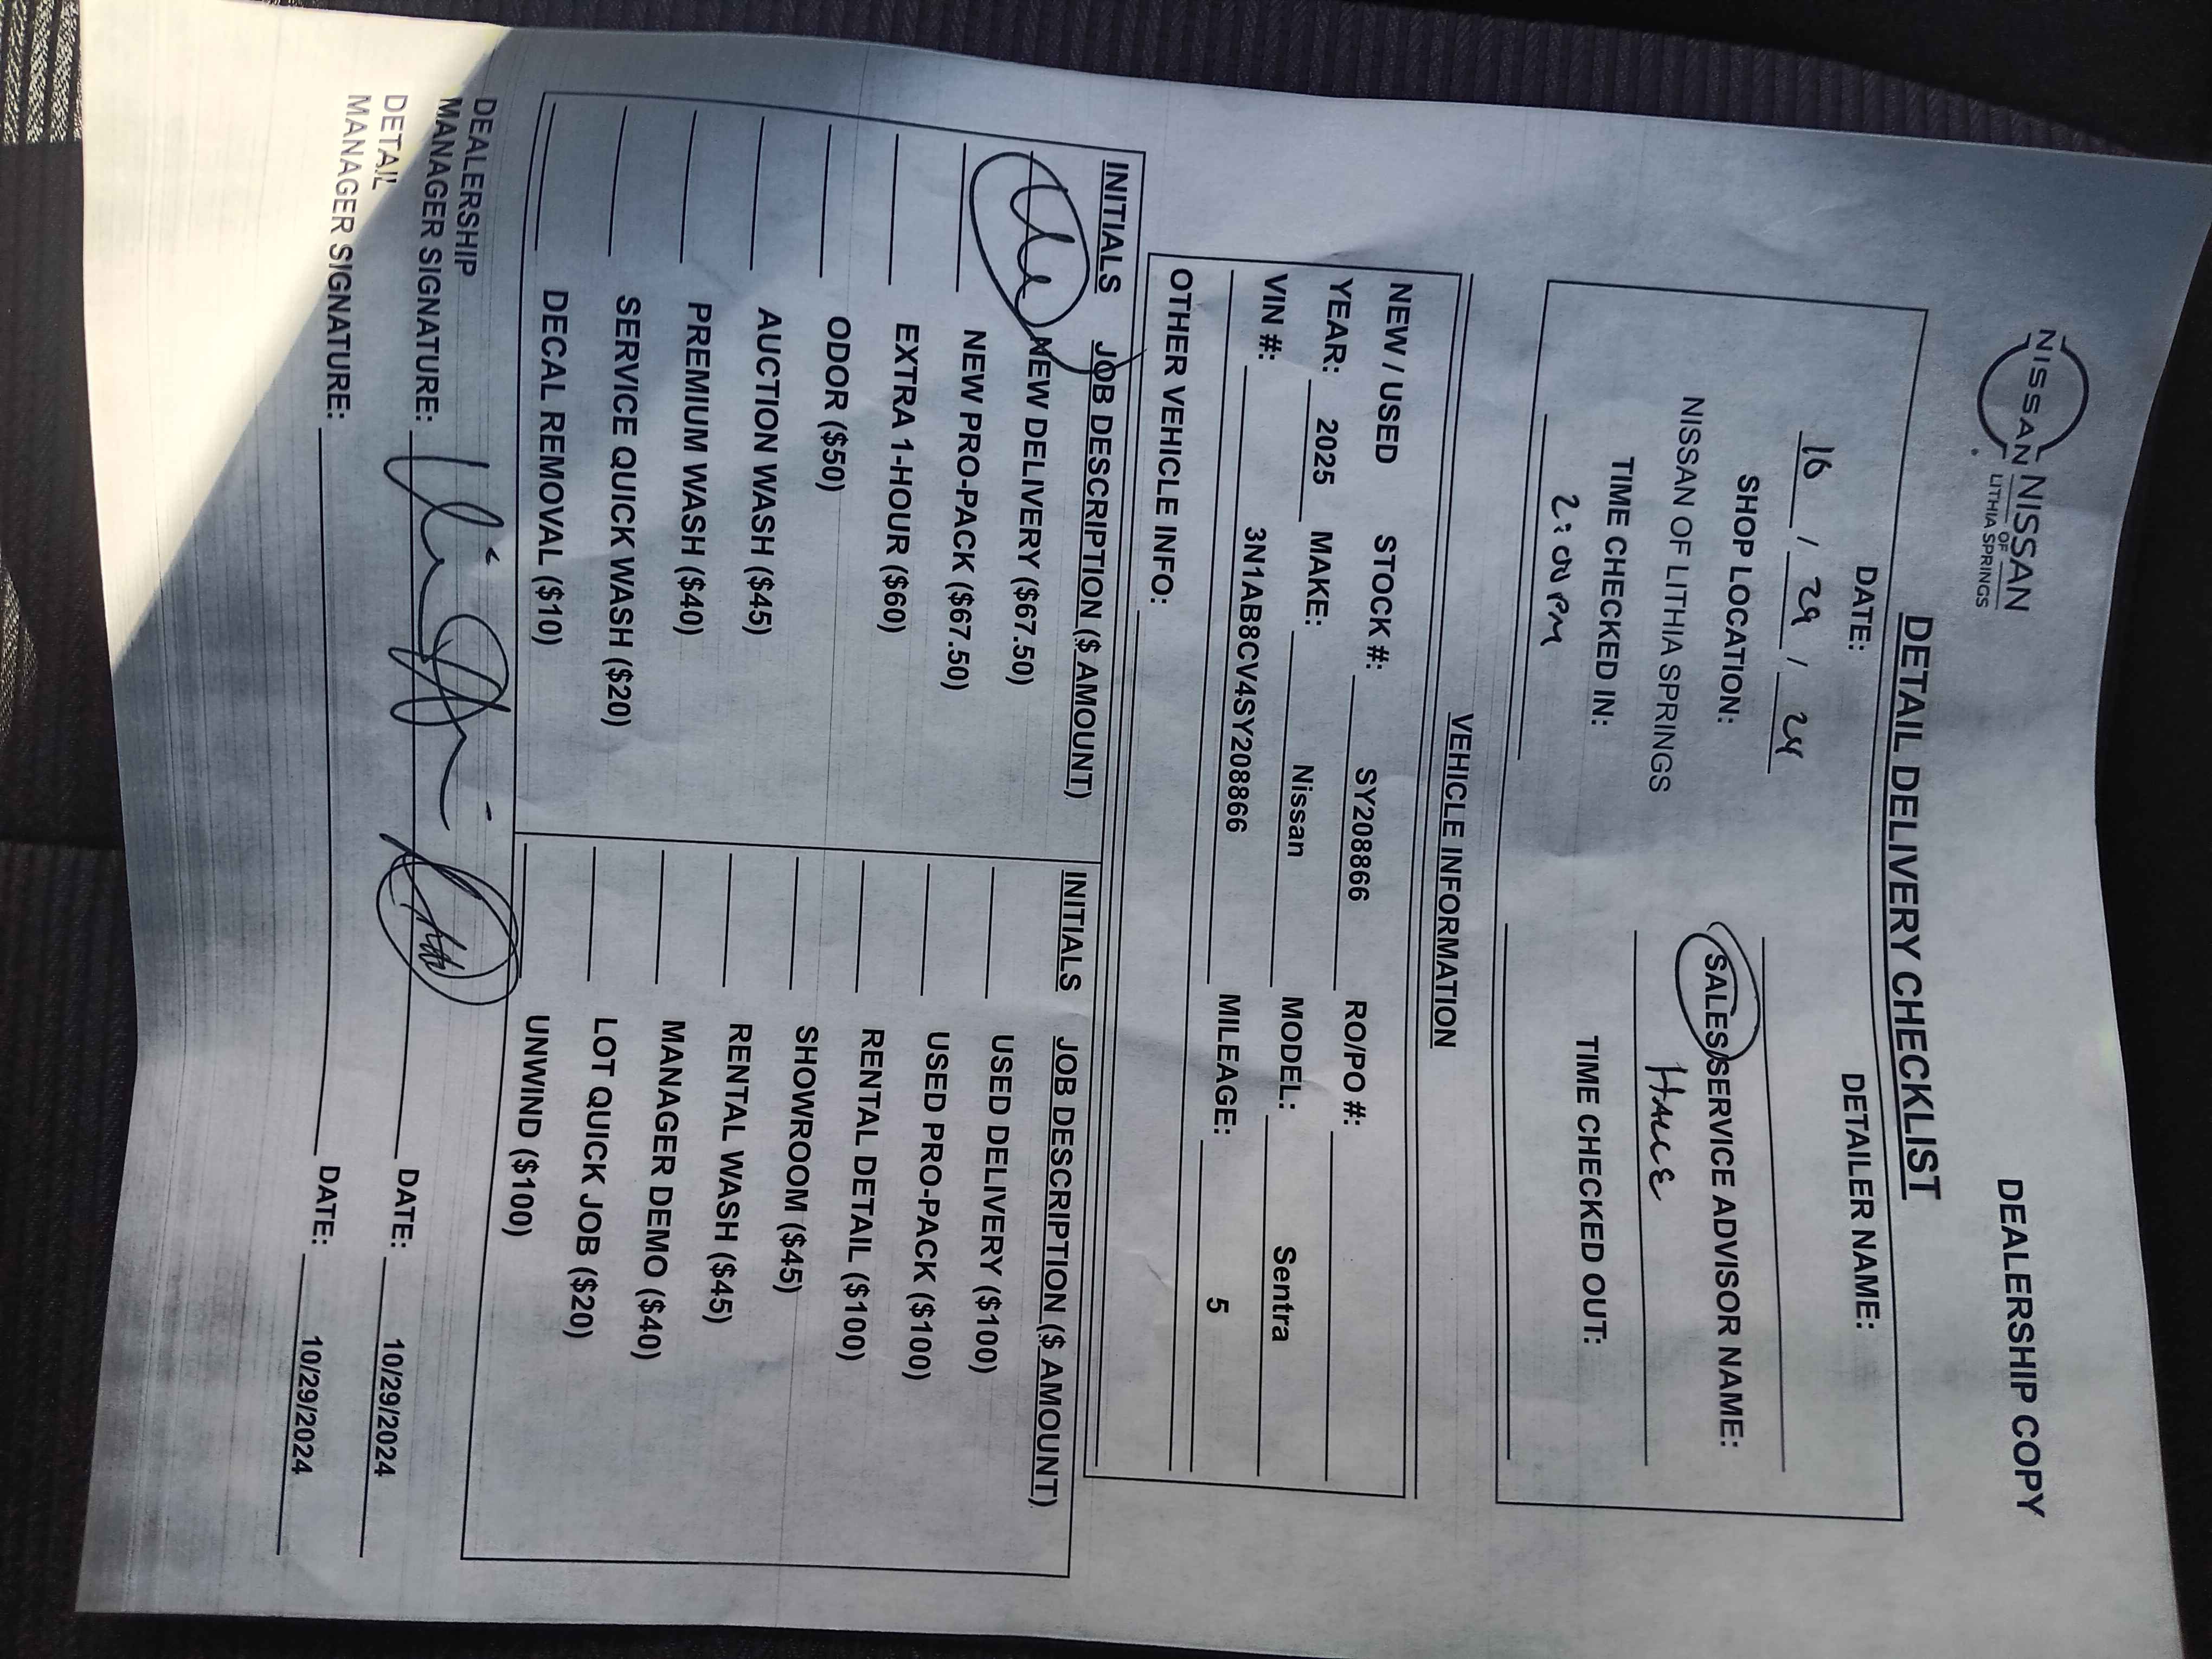 DEALERSHIP COPY
NISSAN NISSAN
OF
LITHIA SPRINGS
DETAIL DELIVERY CHECKLIST
DATE: DETAILER NAME:
10 / 29 / 24
SHOP LOCATION: SALES/SERVICE ADVISOR NAME:
NISSAN OF LITHIA SPRINGS
TIME CHECKED IN: TIME CHECKED OUT:
2:00 PM
VEHICLE INFORMATION
NEW / USED STOCK #: SY208866 RO/PO #:
YEAR: 2025 MAKE: Nissan MODEL: Sentra
VIN #: 3N1AB8CV4SY208866 MILEAGE: 5
OTHER VEHICLE INFO:
INITIALS JOB DESCRIPTION ($ AMOUNT) INITIALS JOB DESCRIPTION ($ AMOUNT)
NEW DELIVERY ($67.50) USED DELIVERY ($100)
NEW PRO-PACK ($67.50) USED PRO-PACK ($100)
EXTRA 1-HOUR ($60) RENTAL DETAIL ($100)
ODOR ($50) SHOWROOM ($45)
AUCTION WASH ($45) RENTAL WASH ($45)
PREMIUM WASH ($40) MANAGER DEMO ($40)
SERVICE QUICK WASH ($20) LOT QUICK JOB ($20)
DECAL REMOVAL ($10) UNWIND ($100)
DEALERSHIP
MANAGER SIGNATURE: DATE: 10/29/2024
DETAIL
MANAGER SIGNATURE: DATE: 10/29/2024